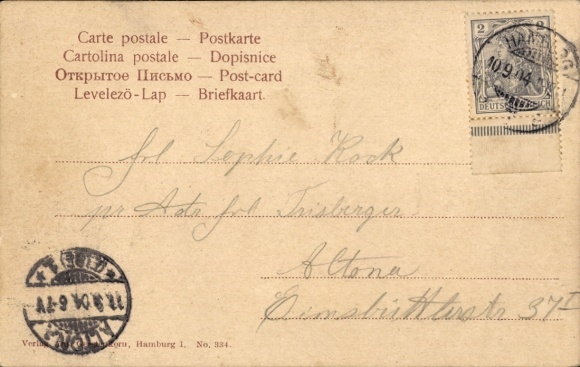 Carte postale — Postkarte
Cartolina postale — Dopisnice
Открытое Письмо — Post-card
Levelező-Lap — Briefkaart.
2 2
DEUTSCHES REICH
HAMBURG
10.9.04
frl Sophie Kock
pr Adr frl Trisberger
Altona
Eimsbüttlerstr 37 I
ALTONA
11.9.04. 6-7V
Verlag Hamburg I. No. 334.